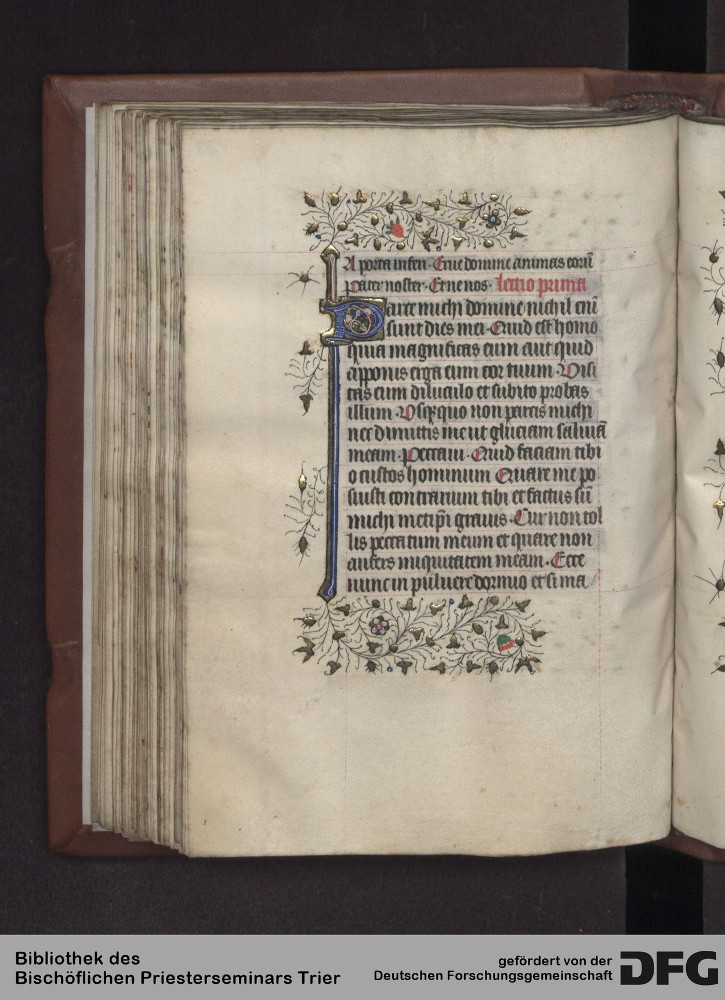 A porta inferi. Erue domine animas eorū
Pater noster. Et ne nos. lectio prima
Parce michi domine nichil eni
sunt dies mei. Quid est homo
quia magnificas eum aut quid
apponis erga eum cor tuum. Uisi
tas eum diluculo et subito probas
illum. Usq̄quo non parcis michi
nec dimittis me ut gluciam saliuā
meam. Peccaui. Quid faciam tibi
o custos hominum Quare me po
suisti contrarium tibi et factus sū
michi metip̄i grauis. Cur non tol
lis peccatum meum et quare non
aufers iniquitatem meam. Ecce
nunc in puluere dormio et si ma
Bibliothek des
Bischöflichen Priesterseminars Trier
gefördert von der
Deutschen Forschungsgemeinschaft
DFG